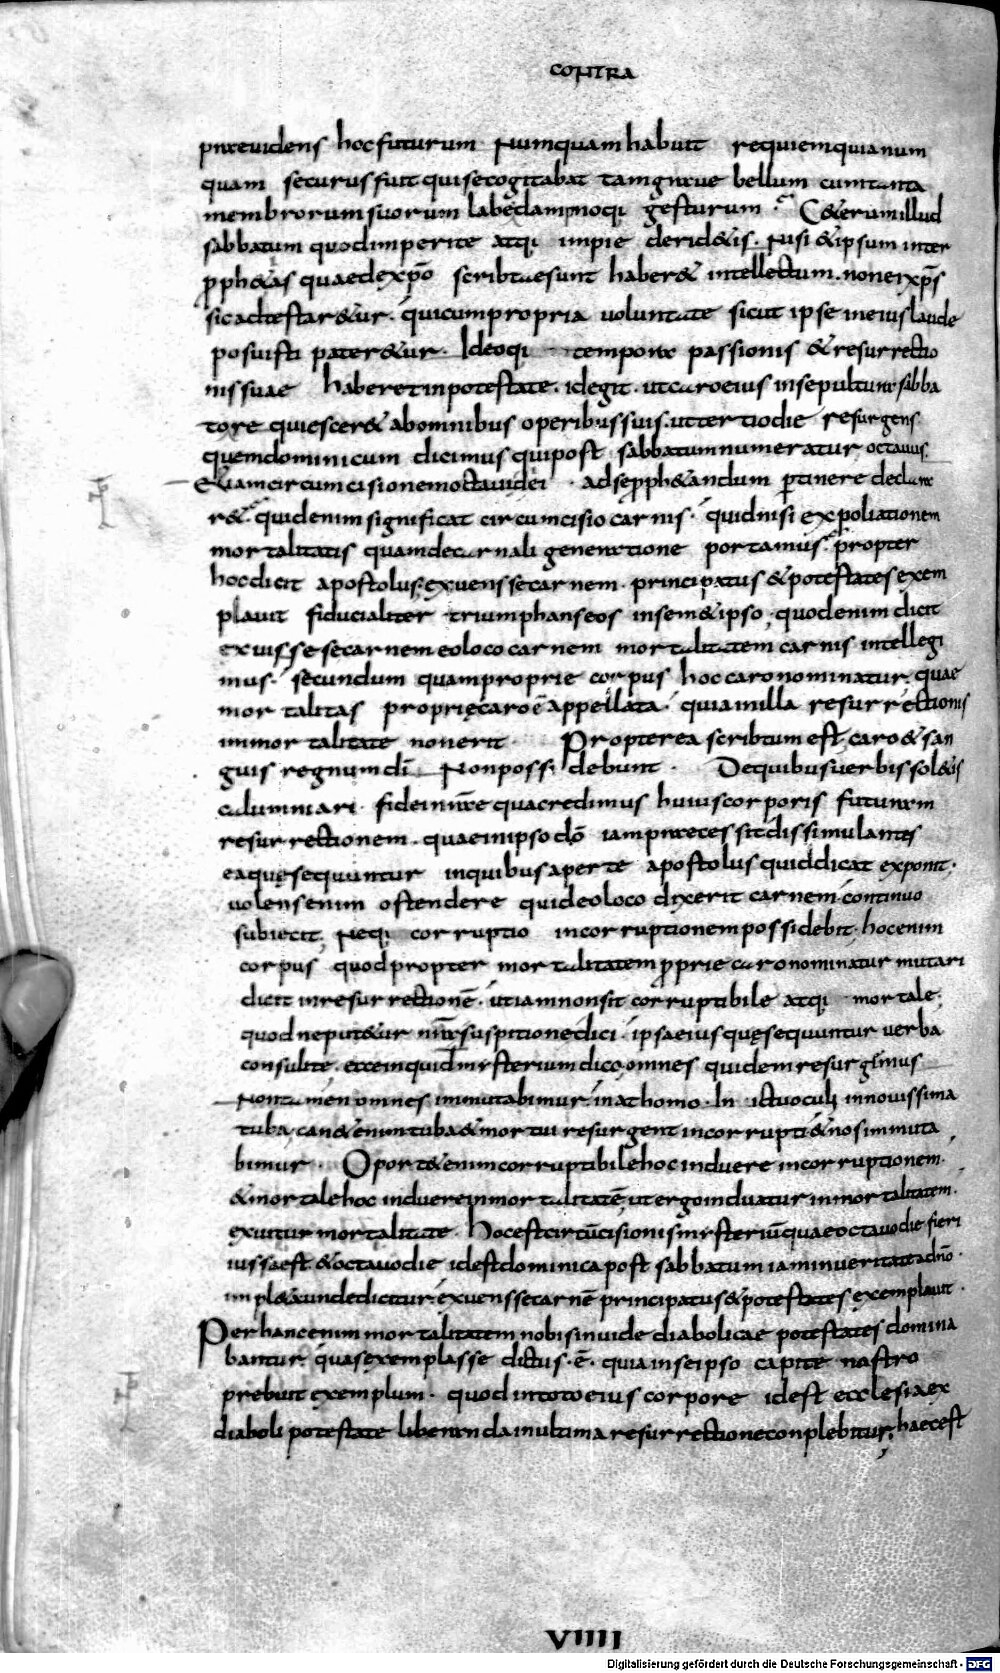 CONTRA
praeuidens hoc futurum Numquam habuit requiem quia num
quam securus fuit qui se cogitabat tam graue bellum cum tanta
membrorum suorum labe damnoq; gesturum. Ceterum illud
sabbatum quod imperite atq; impie deridetis. Nisi et ipsum inter
pphetias quae de xpo scribtae sunt haberet intellectum. non ei xps
sic adtestaretur. qui cum propria uoluntate sicut ipse in eius laude
posuisti pateretur. Ideoq; tempora passionis & resurrectio
nis suae haberet in potestate. id egit. ut caro eius in sepultura sabba
to re quiesceret ab omnibus operibus suis. ut tertio die resurgens
quem dominicum dicimus qui post sabbatum numeratur octauus.
Etiam circumcisionem octaui diei ad se pphetandum ptinere declara
ret. quid enim significat circumcisio carnis. quid nisi expoliationem
mortalitatis quam de carnali generatione portamus. propter
hoc dicit apostolus. exuens se carnem. principatus & potestates exem
plauit fiducialiter triumphans eos in semet ipso. quod enim dicit
exuisse se carnem eo loco carnem mortalitatem carnis intellegi
mus. secundum quam proprie corpus hoc caro nominatur. quae
mortalitas proprie caro ē appellata. quia in illa resurrectionis
inmortalitate non erit. Propterea scribtum est, caro & san
guis regnum di Non possidebunt. De quibus uerbis soletis
calumniari fidei nrae qua credimus huius corporis futuram
resurrectionem. quae in ipso dno iam praecessit dissimulantes
ea quę sequuntur in quibus aperte apostolus quid dicat exponit.
uolens enim ostendere quid eo loco dixerit carnem. continuo
subiecit. Neq; corruptio incorruptionem possidebit. hoc enim
corpus quod propter mortalitatem pprie caro nominatur mutari
dicit in resurrectionē. ut iam non sit corruptibile atq; mortale.
quod ne putetur nra suspitione dici. ipsa eius quę sequuntur uerba
consulite. ecce inquid mysterium dico, omnes quidem resurgimus
Non tamen omnes inmutabimur. in athomo. In ictu oculi in nouissima
tuba, canet enim tuba & mortui resurgent incorrupti & nos inmuta
bimur. Oportet enim corruptibile hoc induere incorruptionem.
& mortale hoc induere inmortalitatē, ut ergo induatur inmortalitatem.
exuitur mortalitate. Hoc est circūcisionis mysteriū quae octauo die fieri
iussa est. & octauo die id est dominica post sabbatum iam in ueritate a dño
impleta unde dicitur. exuens se carnē principatus & potestates exemplauit.
Per hanc enim mortalitatem nobis inuidae diabolicae potestates domina
bantur. quas exemplasse dictus. ē. quia in se ipso capite nostro
prebuit exemplum. quod in toto eius corpore id est ecclesia ex
diaboli potestate liberanda in ultima resurrectione conplebitur, haec est
VIIII
Digitalisierung gefördert durch die Deutsche Forschungsgemeinschaft - DFG